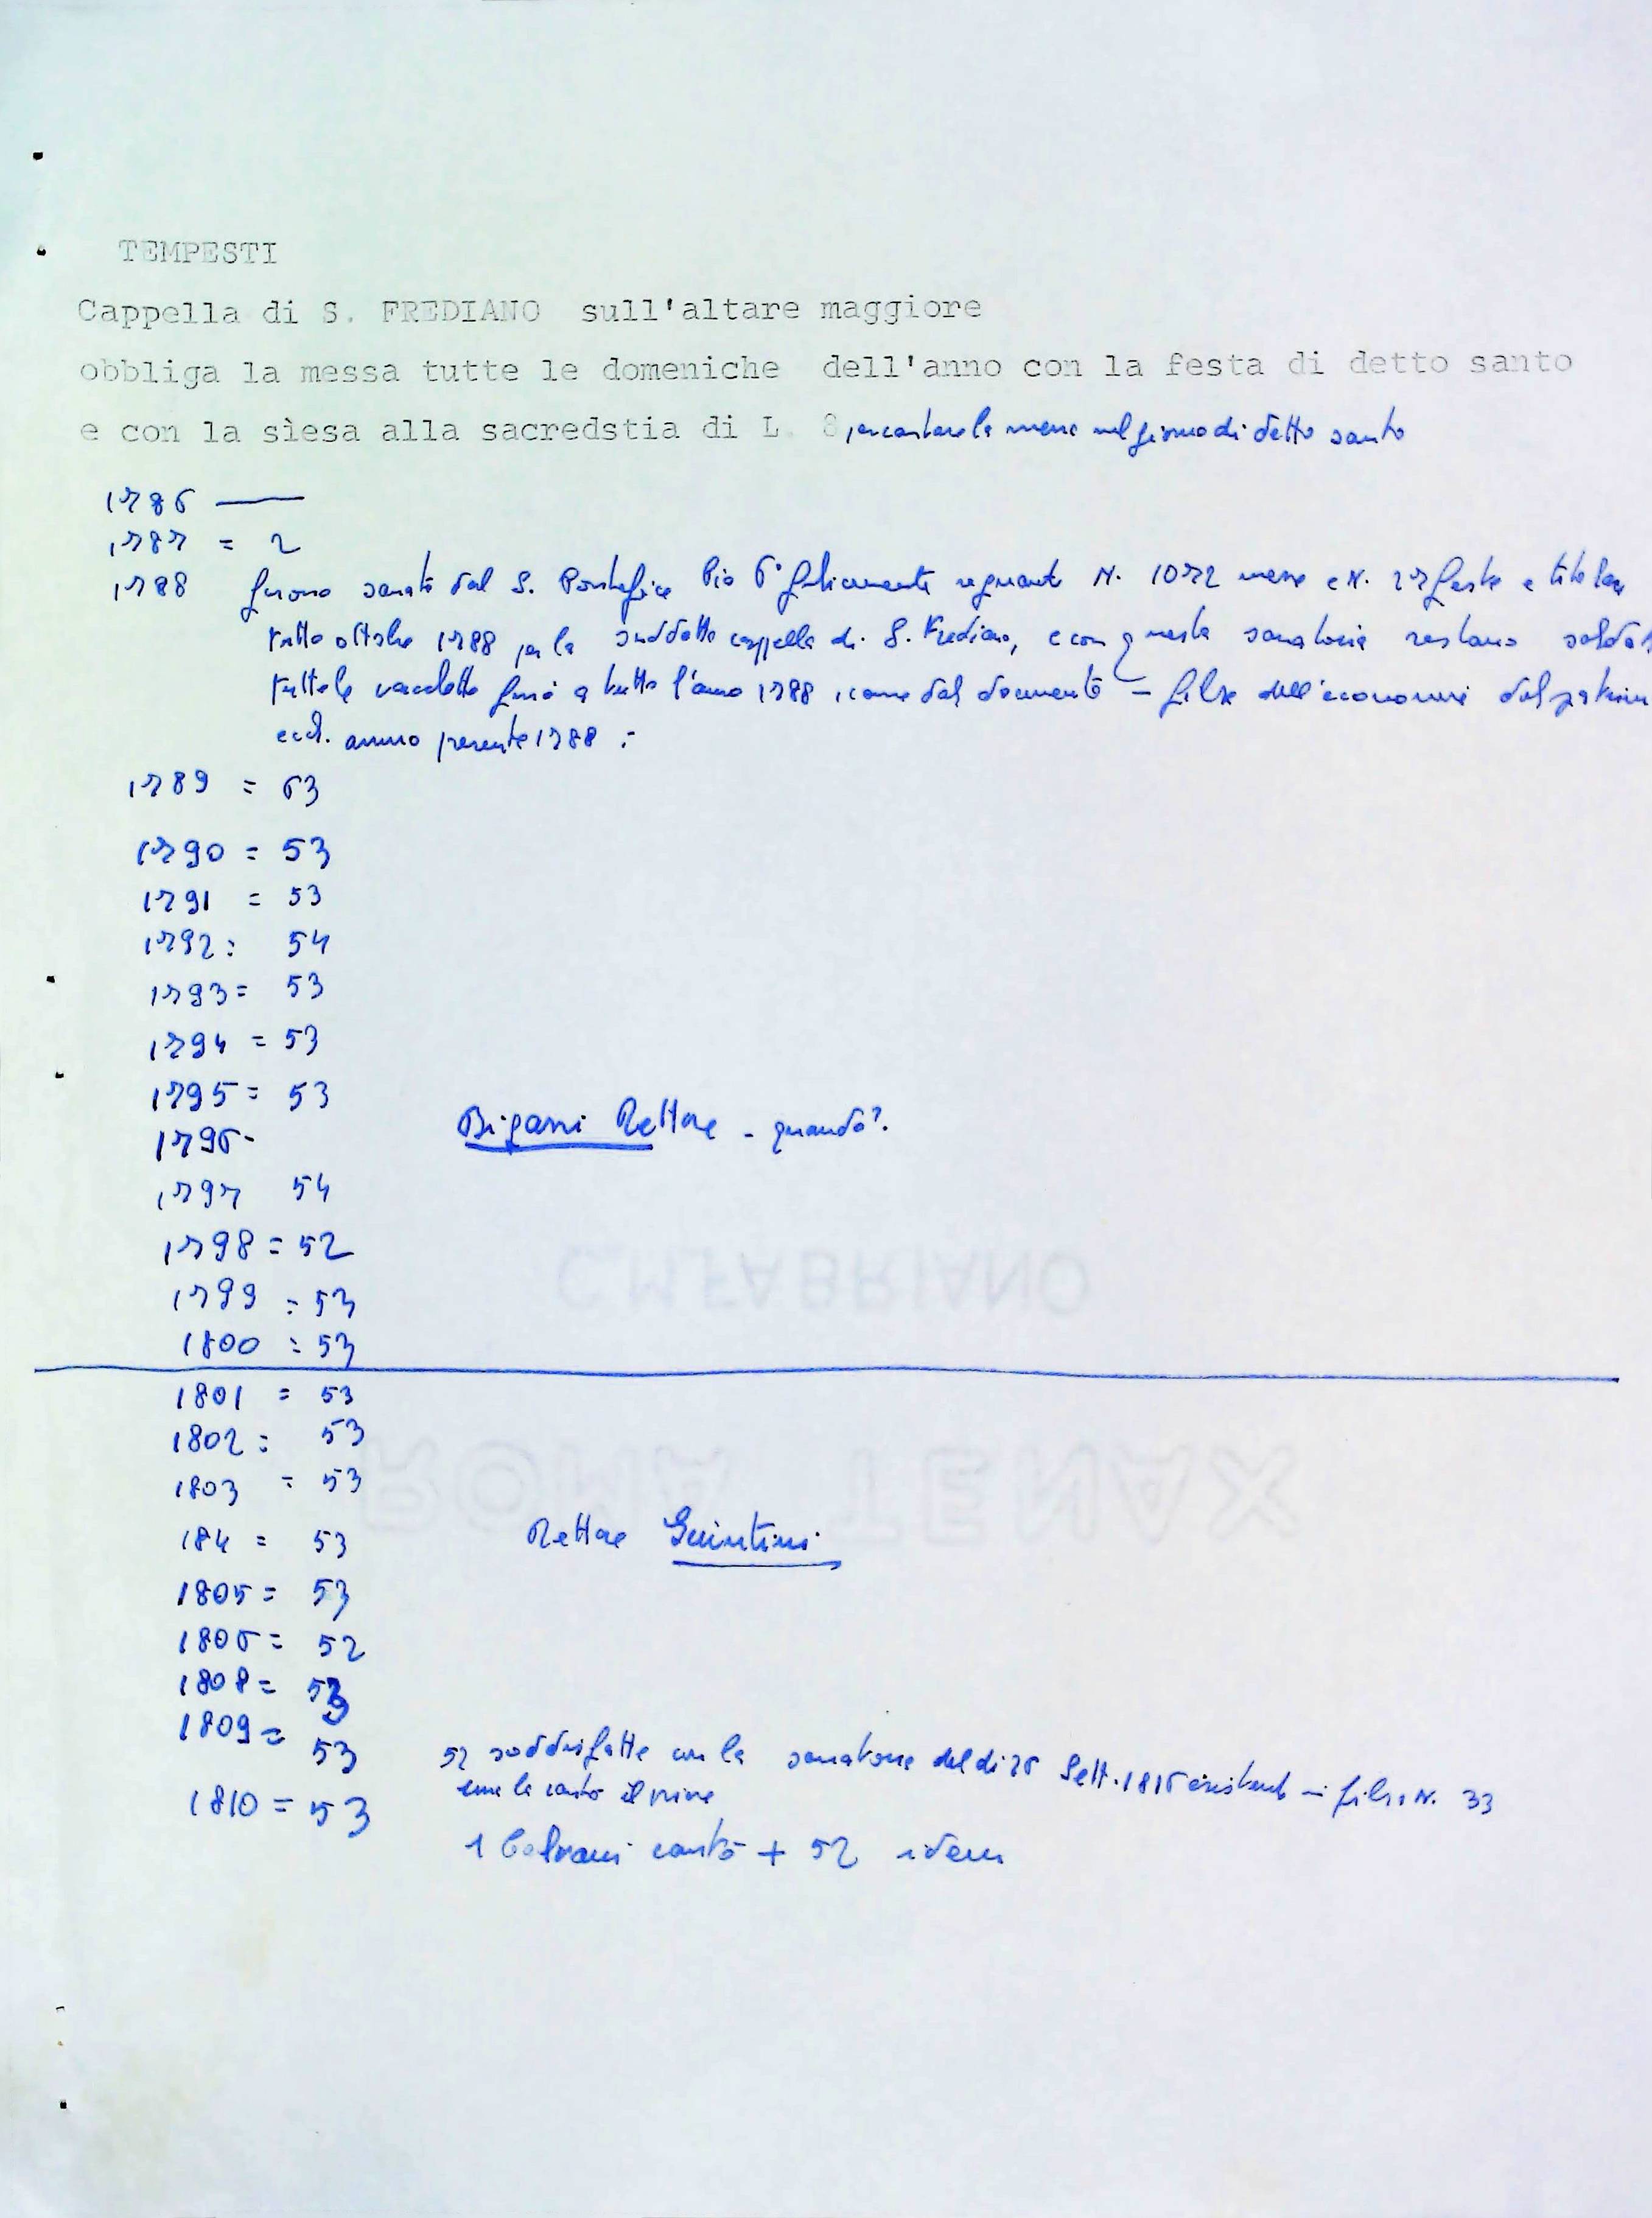 TEMPESTI
Cappella di S. FREDIANO sull'altare maggiore
obbliga la messa tutte le domeniche dell'anno con la festa di detto santo
e con la sìesa alla sacredstia di L. 8, per cantare la messa nel giorno di detto santo
1786 —
1787 = 2
1788 furono sanate dal S. Pontefice Pio 6° felicemente regnante N. 1072 messe e N. 27 feste e titolari
tutto ottobre 1788 per la suddetta cappella di S. Frediano, e con questa sanatoria restano saldate
tutte le vacchette fino a tutto l'anno 1788, come dal documento - filza dell'economie del patrim
eccl. anno presente 1788 :
1789 = 63
1790 = 53
1791 = 53
1792: 54
1793= 53
1794 = 53
1795 = 53
1796- Rettore - quando?
1797 54
1798 = 52
1799 = 53
1800 = 53
C.M.FABRIANO
1801 = 53
1802 = 53
1803 = 53
ROMA TENAX
184 = 53 Rettore Guintini
1805 = 53
1806 = 52
1808 = 53
1809 = 53 52 soddisfatte con la sanatoria del dì 26 Sett. 1816 esistente - filza N. 33
una la cantò il
1810 = 53 1 cantò + 52 idem